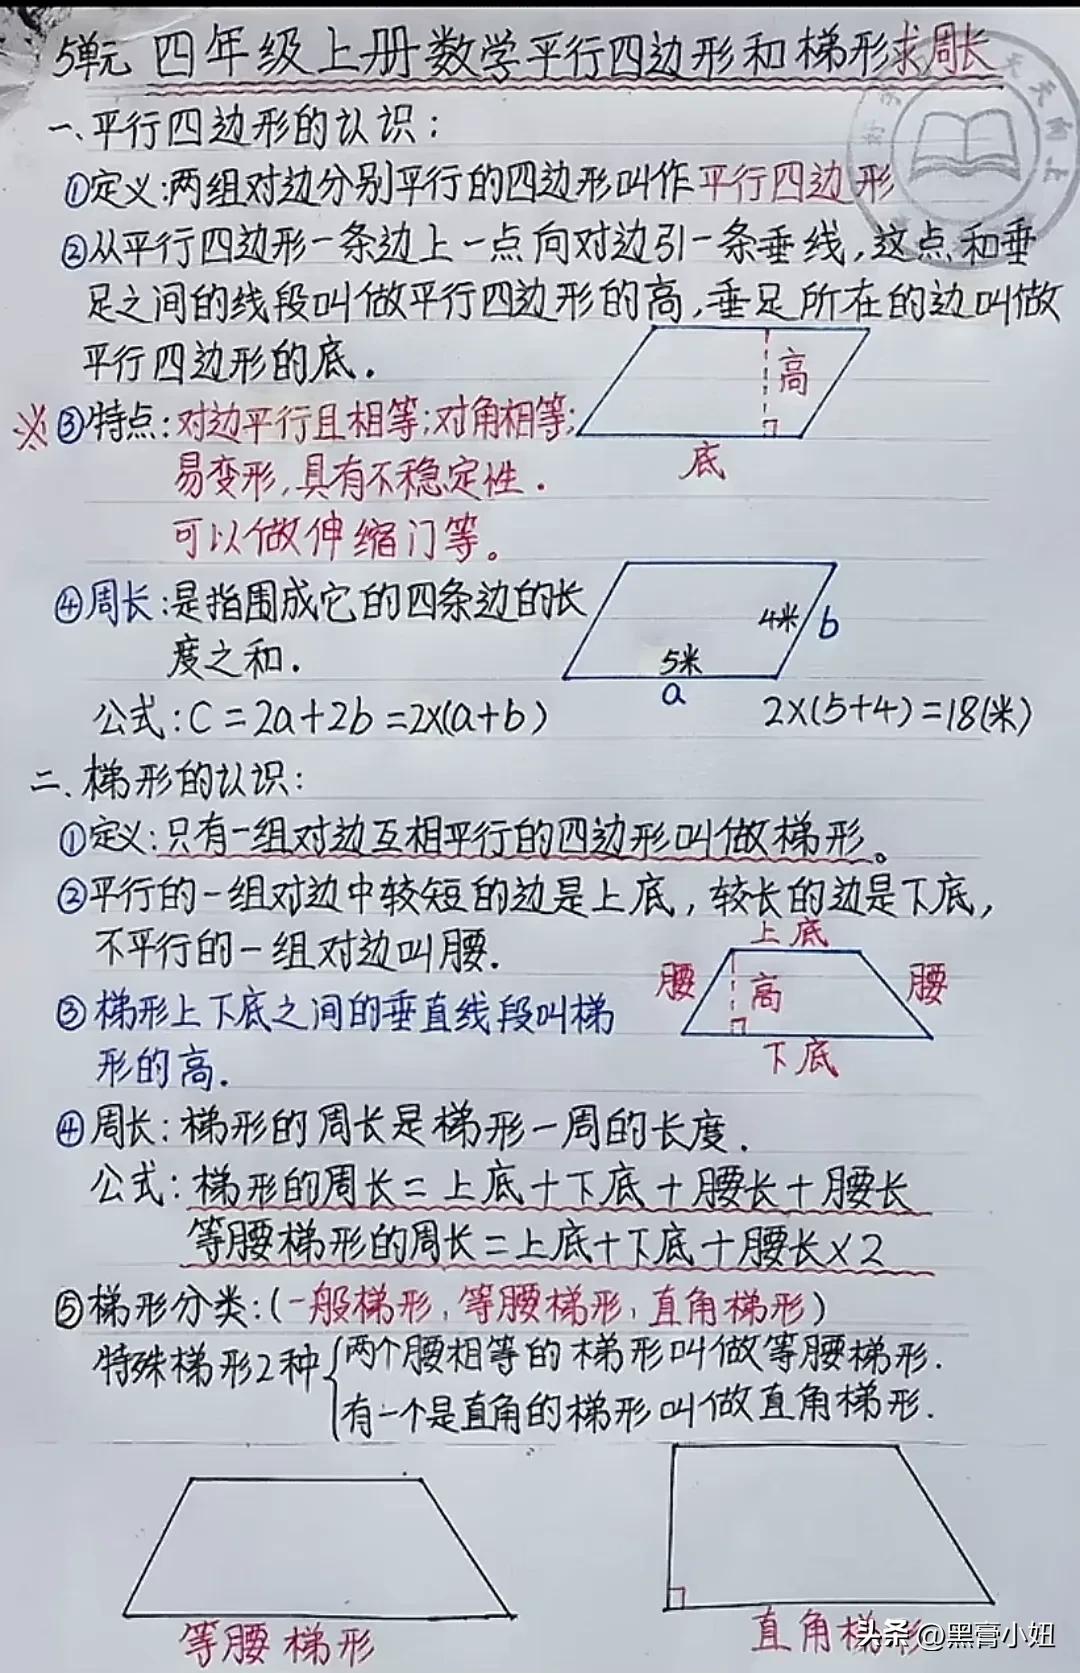 5单元 四年级上册数学平行四边形和梯形求周长
一、平行四边形的认识：
①定义：两组对边分别平行的四边形叫作平行四边形
②从平行四边形一条边上一点向对边引一条垂线，这点和垂
足之间的线段叫做平行四边形的高，垂足所在的边叫做
平行四边形的底.
高
底
※③特点：对边平行且相等；对角相等；
易变形，具有不稳定性.
可以做伸缩门等。
④周长：是指围成它的四条边的长
度之和.
4米 b
5米
a
公式：C=2a+2b=2×(a+b)
2×(5+4)=18(米)
二、梯形的认识：
①定义：只有一组对边互相平行的四边形叫做梯形。
②平行的一组对边中较短的边是上底，较长的边是下底，
不平行的一组对边叫腰.
上底
腰 高 腰
下底
③梯形上下底之间的垂直线段叫梯
形的高.
④周长：梯形的周长是梯形一周的长度.
公式：梯形的周长=上底+下底+腰长+腰长
等腰梯形的周长=上底+下底+腰长×2
⑤梯形分类：(一般梯形，等腰梯形，直角梯形)
特殊梯形2种
两个腰相等的梯形叫做等腰梯形.
有一个是直角的梯形叫做直角梯形.
等腰梯形
直角梯形
头条 @黑膏小妞
天天向上